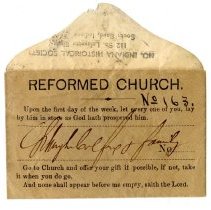 NO. INDIANA HISTORICAL SOCIETY
112 So. Lafayette
South Bend, Indiana
REFORMED CHURCH.
No 163.
Upon the first day of the week, let every one of you, lay
by him in store as God hath prospered him.
No.
Go to Church and offer your gift if possible, if not, take
it when you do go.
And none shall appear before me empty, saith the Lord.